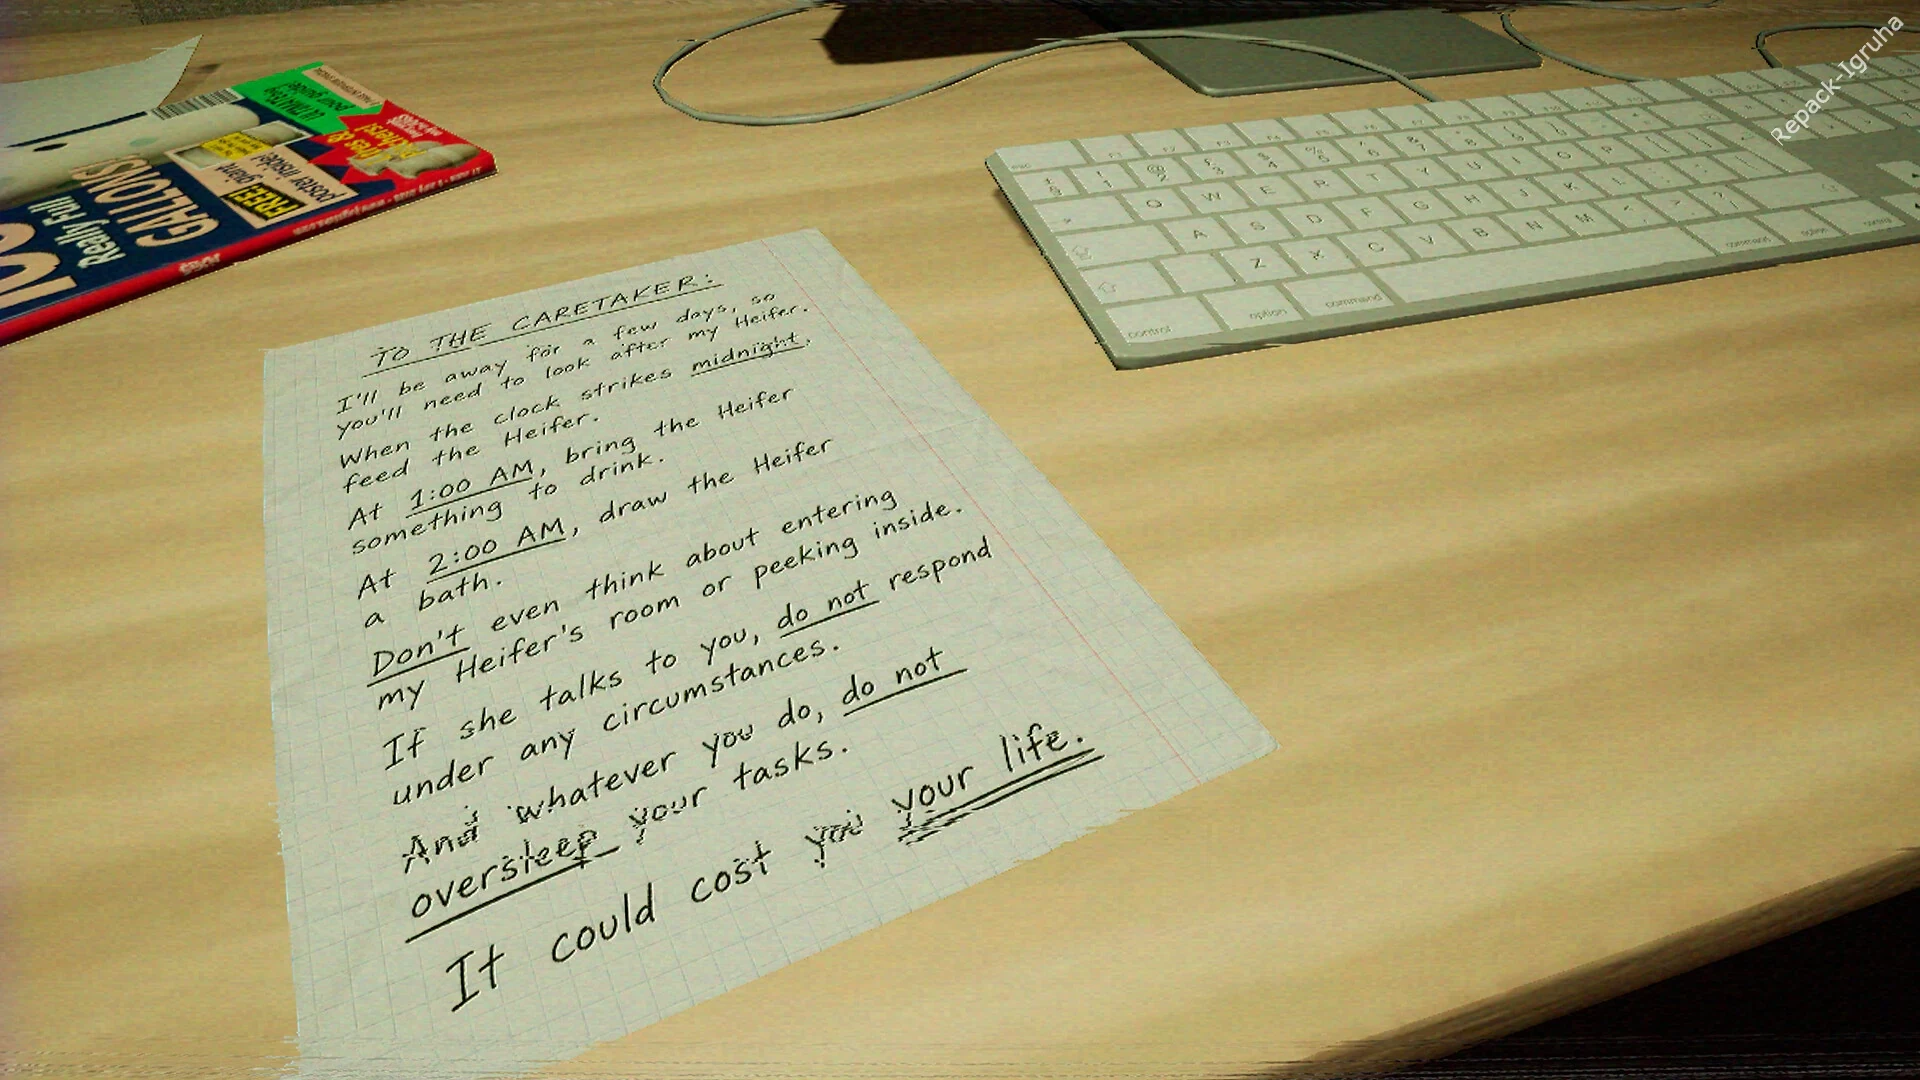 TO THE CARETAKER:
I'll be away for a few days, so
you'll need to look after my Heifer.
When the clock strikes midnight,
feed the Heifer.
At 1:00 AM, bring the Heifer
something to drink.
At 2:00 AM, draw the Heifer
a bath.
Don't even think about entering
my Heifer's room or peeking inside.
If she talks to you, do not respond
under any circumstances.
And whatever you do, do not
oversleep your tasks.
It could cost you your life.
Really Full
GALLONS!
FREE!
giant
poster inside!
Q W E R T Y U I O P
A S D F G H J K L
Z X C V B N M
control option command
command option control
Repack-Igruha